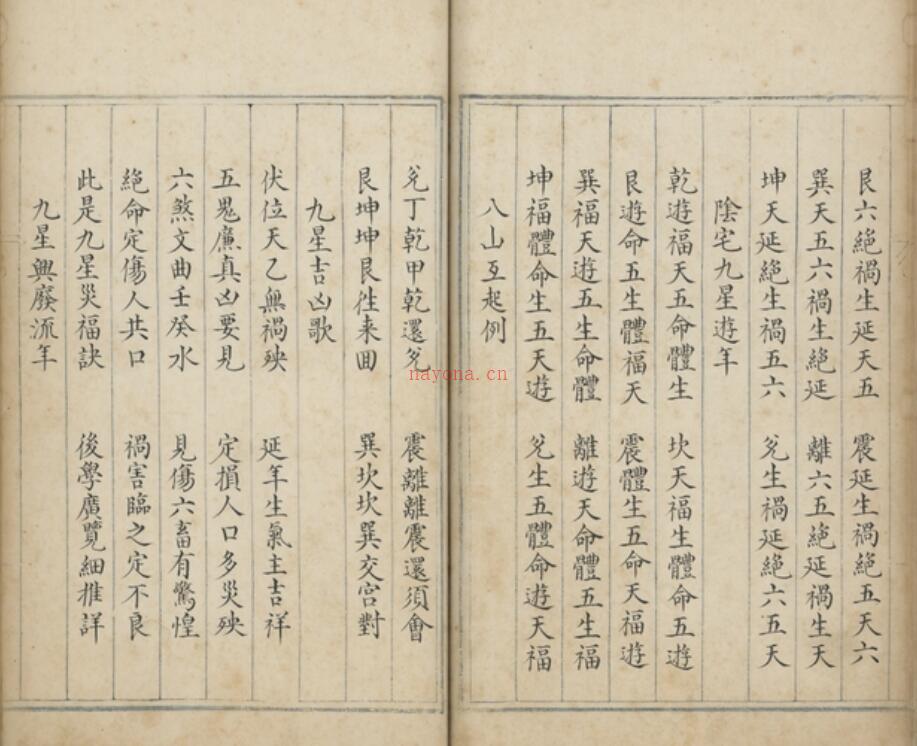 艮六絕禍生延天五　震延生禍絕五天六
巽天五六禍生絕延　離六五絕延禍生天
坤天延絕生禍五六　兌生禍延絕六五天
陰宅九星遊年
乾遊福天五命體生　坎天福生體命五遊
艮遊命五生體福天　震體生五命天福遊
巽福天遊五生命體　離遊天命體五生福
坤福體命生五天遊　兌生五體命遊天福
八山互起例
兌丁乾甲乾還兌　震離離震還須會
艮坤坤艮往来回　巽坎坎巽交宫對
九星吉凶歌
伏位天乙無禍殃　延年生氣主吉祥
五鬼廉真凶要見　定損人口多災殃
六煞文曲壬癸水　見傷六畜有驚惶
絕命定傷人共口　禍害臨之定不良
此是九星災福訣　後學廣覽細推詳
九星興廢流年
nayona.cn